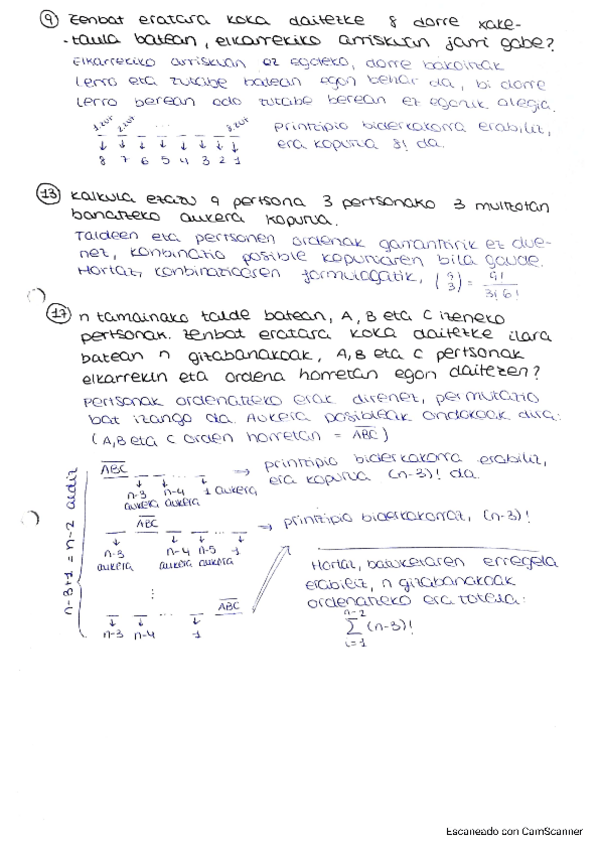 9) Zenbat eratara koka daitezke 8 dorre xake-
-taula batean, elkarrekiko arriskuan jarri gabe?
Elkarrekiko arriskuan ez egoteko, dorre bakoitzak
lerro eta zutabe batean egon behar da, bi dorre
lerro berean edo zutabe berean ez egonik. Alegia.
1.zut 2.zut ... 8.zut
↓ ↓ ↓ ↓ ↓ ↓ ↓ ↓
8 7 6 5 4 3 2 1
printzipio biderkakorra erabiliz,
era kopurua 8! da.
13) Kalkula ezazu 9 pertsona 3 pertsonako 3 multzotan
banatzeko aukera kopurua.
Taldeen eta pertsonen ordenak garrantzirik ez due-
nez, konbinatio posible kopuruaren bila gaude.
Hortaz, konbinazioaren formulagatik, (9 3) = 9!/3!6!
17) n tamainako talde batean, A, B eta C izeneko
pertsonak. Zenbat eratara koka daitezke ilara
batean n gizabanakoak, A, B eta C pertsonak
elkarrekin eta ordena horretan egon daitezen?
Pertsonak ordenatzeko erak direnez, permutazio
bat izango da. Aukera posibleak ondokoak dira:
(A, B eta C orden horretan = ABC)
n-3+1 = n-2 aldiz
ABC ... → printzipio biderkakorra erabiliz,
era kopurua (n-3)! da.
n-3 n-4 1 aukera
aukera aukera
ABC ... → printzipio biderkakorraz, (n-3)!
n-3 n-4 n-5 1
aukera aukera aukera
⋮
... ABC
n-3 n-4 1
Hortaz, batuketaren erregela
erabiliz, n gizabanakoak
ordenatzeko era totala:
n-2
∑ (n-3)!
i=1
Escaneado con CamScanner